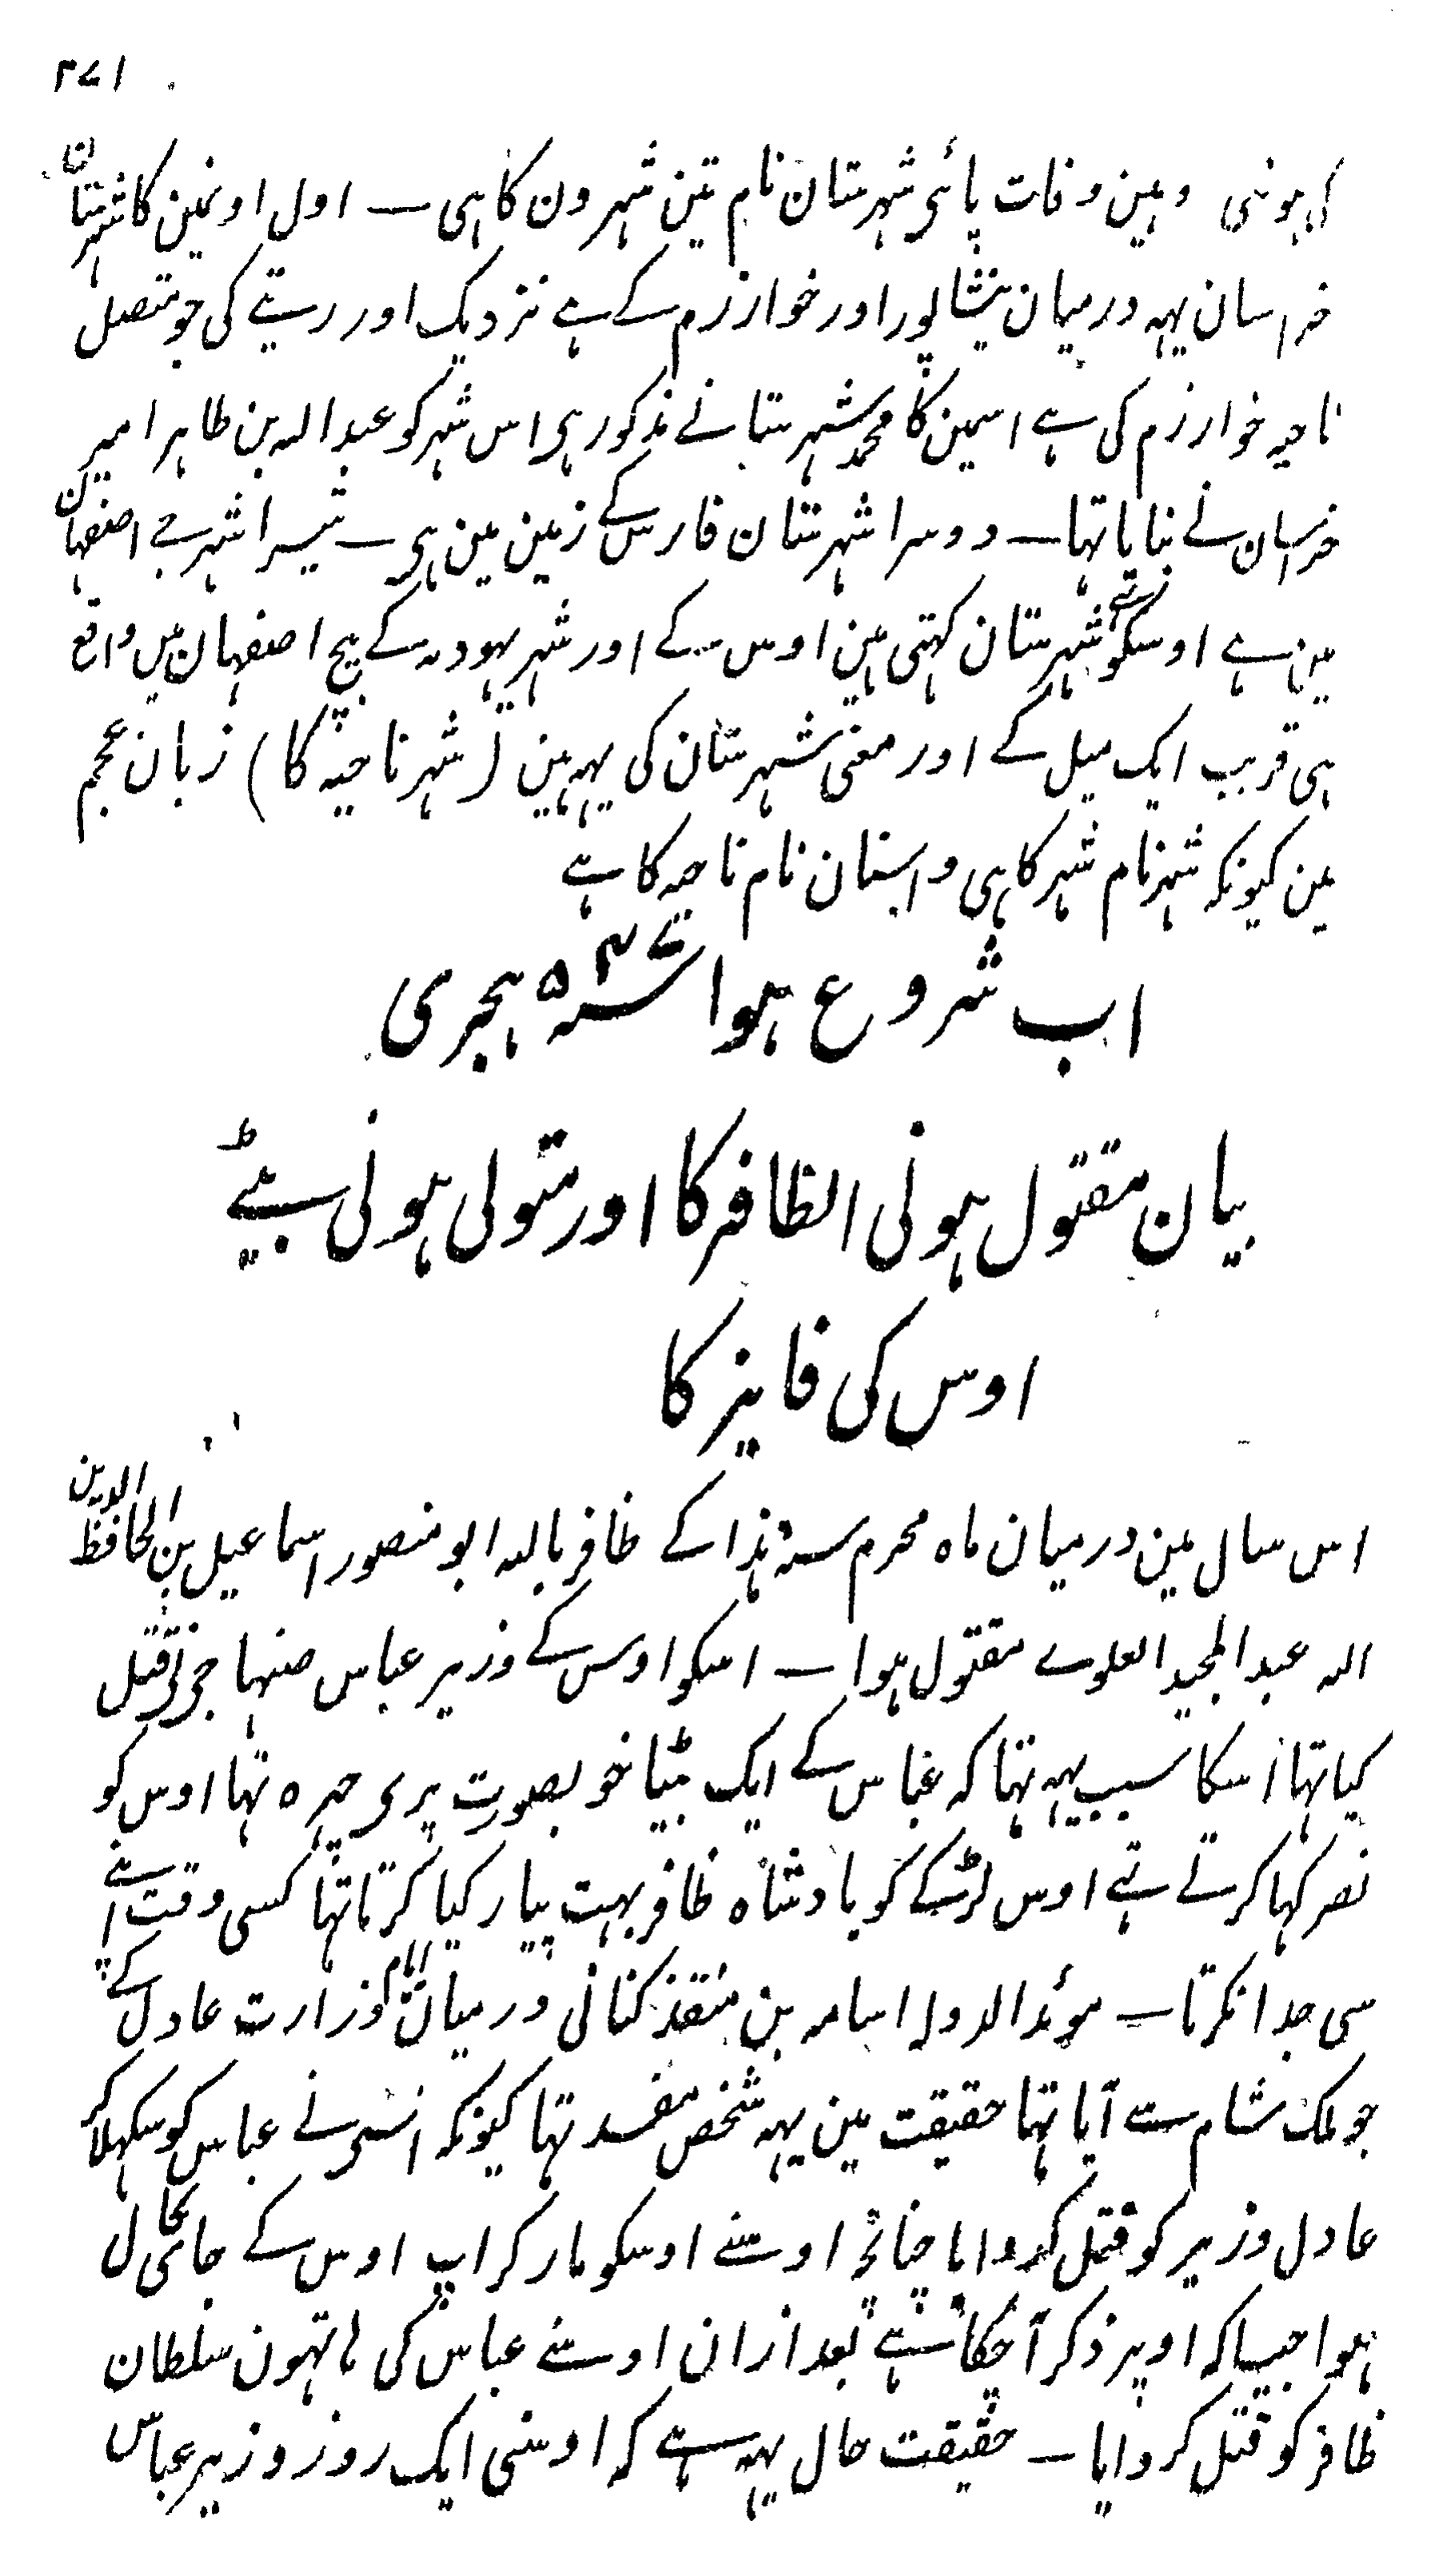 ۳۷۱
کی ہوئی وہین وفات پائی شہرستان نام تین شہرون کا ہی ـ اول اونمین کا شہرستان
خراسان یہہ درمیان نیشاپور اور خوارزم کے ہے نزدیک اور ریتے کی جو متصل
ناحیہ خوارزم کی ہے اسمین کا محمد شہرستانے مذکور ہی اس شہر کو عبد اللہ بن طاہر امیر
خراسان نے بنایا تہا ـ دوسرا شہرستان فارس کے زمین مین ہی ـ تیسرا شہر جے اصفہان
مین ہے اوسکو شہرستان کہتی ہین اوس کے اور شہر یہودیہ کے بیچ اصفہان مین واقع
ہی قریب ایک میل کے اور معنی شہرستان کی یہہ ہین ( شہر ناحیہ کا ) زبان عجم
مین کیونکہ شہر نام شہر کا ہی و استان نام ناحیہ کا ہے
اب شروع ہوا سنہ ۵۴۷ ہجری
بیان مقتول ہونی الظافر کا اور متولی ہونی بیٹے
اوس کی فایز کا
اس سال مین درمیان ماہ محرم سنہ ہذا کے ظافر باللہ ابو منصور اسماعیل بن الحافظ الدین
اللہ عبد المجید العلوے مقتول ہوا ـ اسکو اوس کے وزیر عباس صنہاجی نی قتل
کیا تہا اسکا سبب یہہ تہا کہ عباس کے ایک بیٹا خوبصورت پری چہرہ تہا اوس کو
نصر کہا کرتے تہے اوس لڑکے کو بادشاہ ظافر بہت پیار کیا کرتا تہا کسی وقت اپنے
سی جدا نکرتا ـ موئد الدولہ اسامہ بن منقذ کنانی درمیان ایام وزارت عادل کے
جو ملک شام سے آیا تہا حقیقت مین یہہ شخص مفسد تہا کیونکہ اسی نے عباس کو سکہلا کر
عادل وزیر کو قتل کروایا چنانچہ اوسنے اوسکو مار کر آپ اوس کے جائی بحال
ہوا جیسا کہ اوپر ذکر آچکا ہے بعد ازان اوسنے عباس کی ہاتہون سلطان
ظافر کو قتل کروایا ـ حقیقت حال یہہ ہے کہ اوسنی ایک روز وزیر عباس